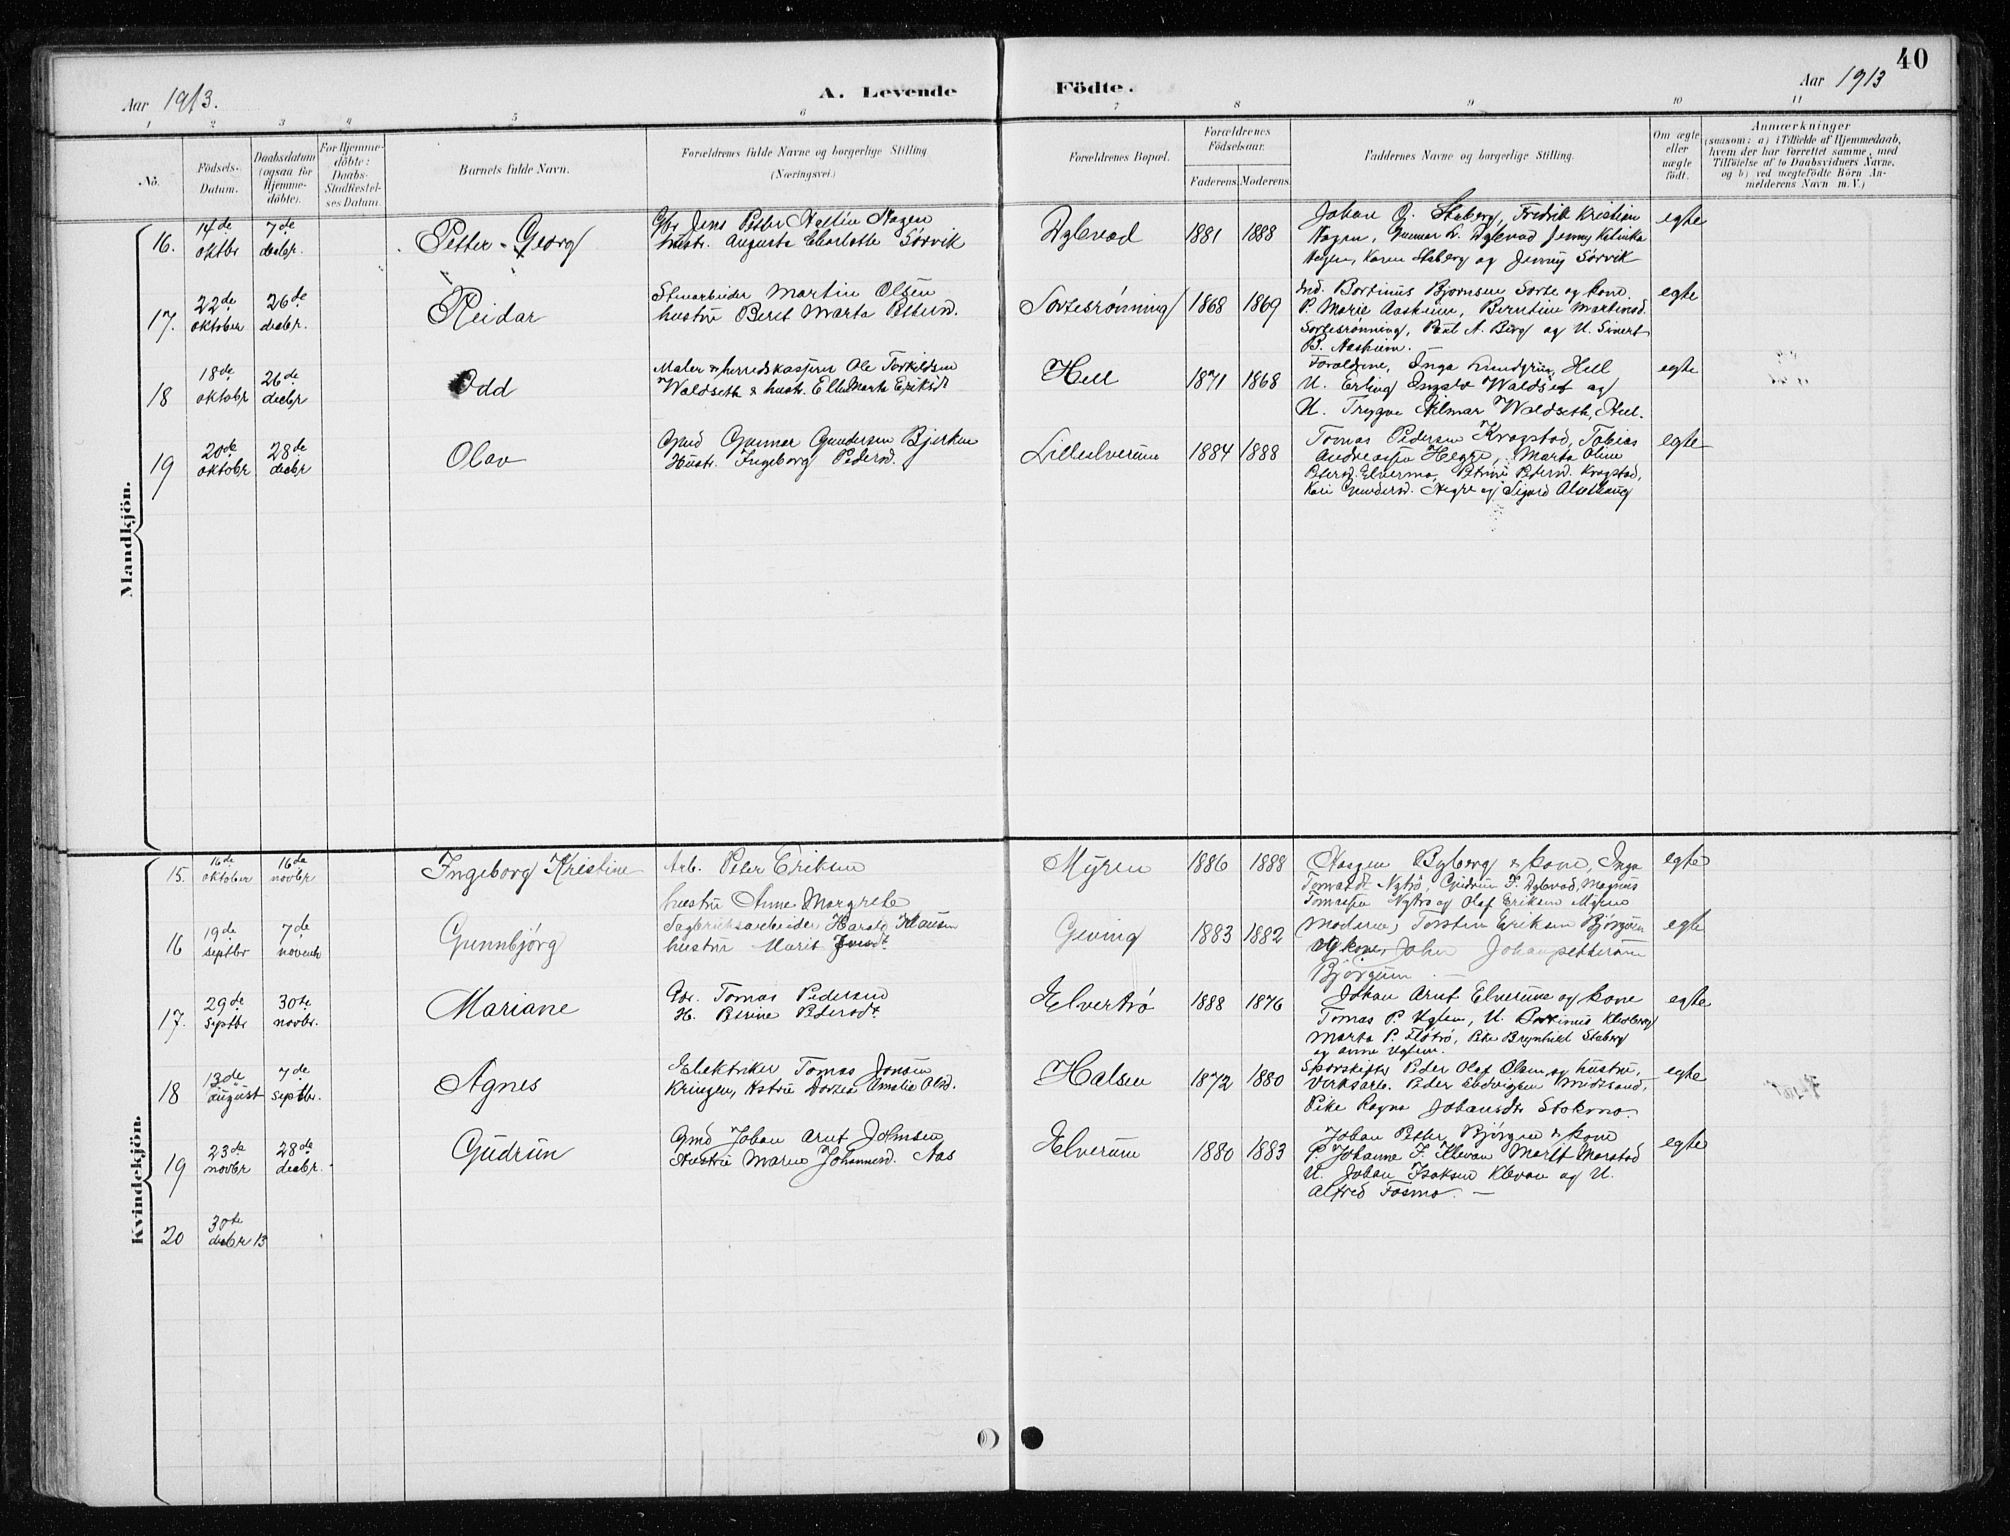 40
Aar 1913.
A. Levende Födte.
Aar 1913
1 2 3 4 5 6 7 8 9 10 11
No.
Födsels-Datum.
Daabsdatum (ogsaa for Hjemme-döbte).
For Hjemme-döbte: Daabs-Stadfæstel-ses Datum.
Barnets fulde Navn.
Forældrenes fulde Navne og borgerlige Stilling (Næringsvei.)
Forældrenes Bopæl.
Forældrenes Födselsaar.
Faderens. Moderens.
Faddernes Navne og borgerlige Stilling.
Om ægte eller uægte födt.
Anmærkninger
(saasom: a) i Tilfælde af Hjemmedaab, hvem der har forrettet samme, med Tilföielse af to Daabsvidners Navne, og b) ved uægtefödte Börn An-melderens Navn m. V.)
Mandkjön.
16. 14de oktbr 7de desbr. Petter-Georg
Gbr Jens Petter Hagen
hustr. Augusta Charlotte Sörvik
Dybvad 1881 1888
Johan O. Staberg, Fredrik Kristian
Hagen, Gunnar Dybvad Jenny
Hagen, Karen Staberg og Jenny Sörvik
egte
17. 22de oktober 26de desbr. Reidar
Stenarbeider Martin Olsen
hustru Berit Marta
Sortesrønning 1868 1869
Ind. Bortinus Bjørnsen Sorte og kone,
P. Marie Aasheim, Berntine
Sortesrønning, Paul A. Berg og U. Sivert
B. Aasheim.
egte
18 18de oktobr 26de decbr Odd
Maler & herredskasserer Ole Torkildsen
Waldseth & hustr. Elle Marta
Hell 1871 1868
Forældrene, Inga Hell
U. Erling Waldset og
U. Trygve Hilmar Waldseth, Hell.
egte
19 20de oktobr 28de desbr Olav
Gmd Gunnar Gundersen Bjerkan
Hustr. Ingeborg Pedersd.
Lilleelverum 1884 1888
Tomas Pedersen Kragstad, Tobias
Andreassen Hegre, Marta Oline
Petersd. Elvermo, Petrine Petersd. Kragstad,
Kari Gundersd. Hegre og Sigurd Alsthaug
egte
Kvindekjön.
15. 16de oktober 16de novbr Ingeborg Kristine
Arb. Peter Eriksen
hustru Anne Margrete
Myren 1886 1888
Byberg & kone, Inga
Tomasdt Nytrø, Gudrun F. Dybvad, Magnus
Nytrø og Olaf Eriksen Myren
egte
16 19de septbr 7de novembr Gunnbjørg
Sagbruksarbeider Harald Hansen
hustru Marit
Geving 1883 1882
Moderen, Torsten Eriksen Bjørgum
og kone, John Johanpettersen
Bjørgum
egte
17. 29de septbr 30te novbr. Mariane
Gbr. Tomas Pedersen
H. Petrine Pedersdt
Elvertrø 1888 1876
Johan Arnt Elverum og kone
Tomas P. Uglem, U. Klevberg
Marta P. Flotrø, Pike Brynhild Staberg
og Anne Uglem.
egte
18 13de august 7de septbr. Agnes
Elektriker Tomas Jonsen
Kringen, Hstru Dortea Amalie Olsd.
Halsen 1872 1880
Sporskifter Peder Olaf Olsen og hustru,
Verksarb. Peder Ludvigsen Midtsand,
Pike Ragna Johansdtr Stokmo
egte
19 23de novbr 28de desbr. Gudrun
Gmd Johan Arnt Johnsen
Hustru Maren Johannesd. Aas
Elverum 1880 1883
Johan Petter Bjørgen & kone
P. Johanne F. Klevan Marit Marstad
U. Johan Isaksen Klevan og U.
Alfred Fosmo. —
egte
20 30te desbr 13